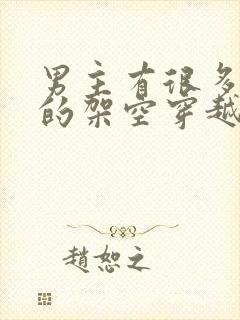 男主有很多
的架空穿越
趙恕之